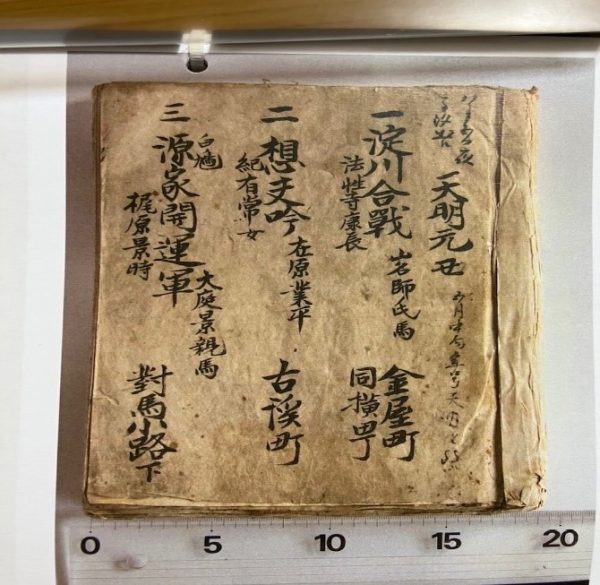 天明元丑
一 淀川合戰
山名師氏馬
法性寺康長
金屋町
同横町
二 想夫吟
在原業平
紀有常女
古溪町
三 源家開運軍
大庭景親馬
梶原景時
對馬小路下
0 5 10 15 20